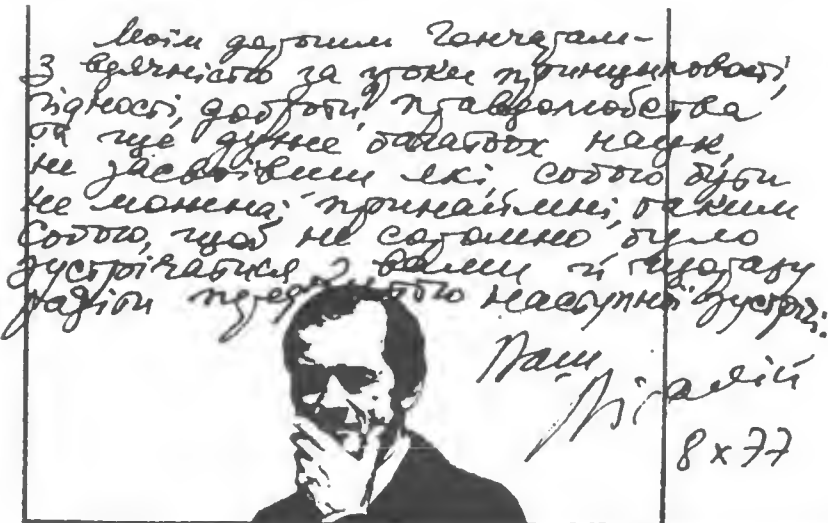 Моїм дорогим Гончарам –
з вдячністю за уроки принциповості,
гідності, доброти, правдолюбства
та ще дуже багатьох наук,
не засвоївши які, собою бути
не можна; принаймні, таким
собою, щоб не соромно було
зустрічатися з вами й щоразу
радіти передчуттю наступної зустрічі.
Ваш
Віталій
8 x 77